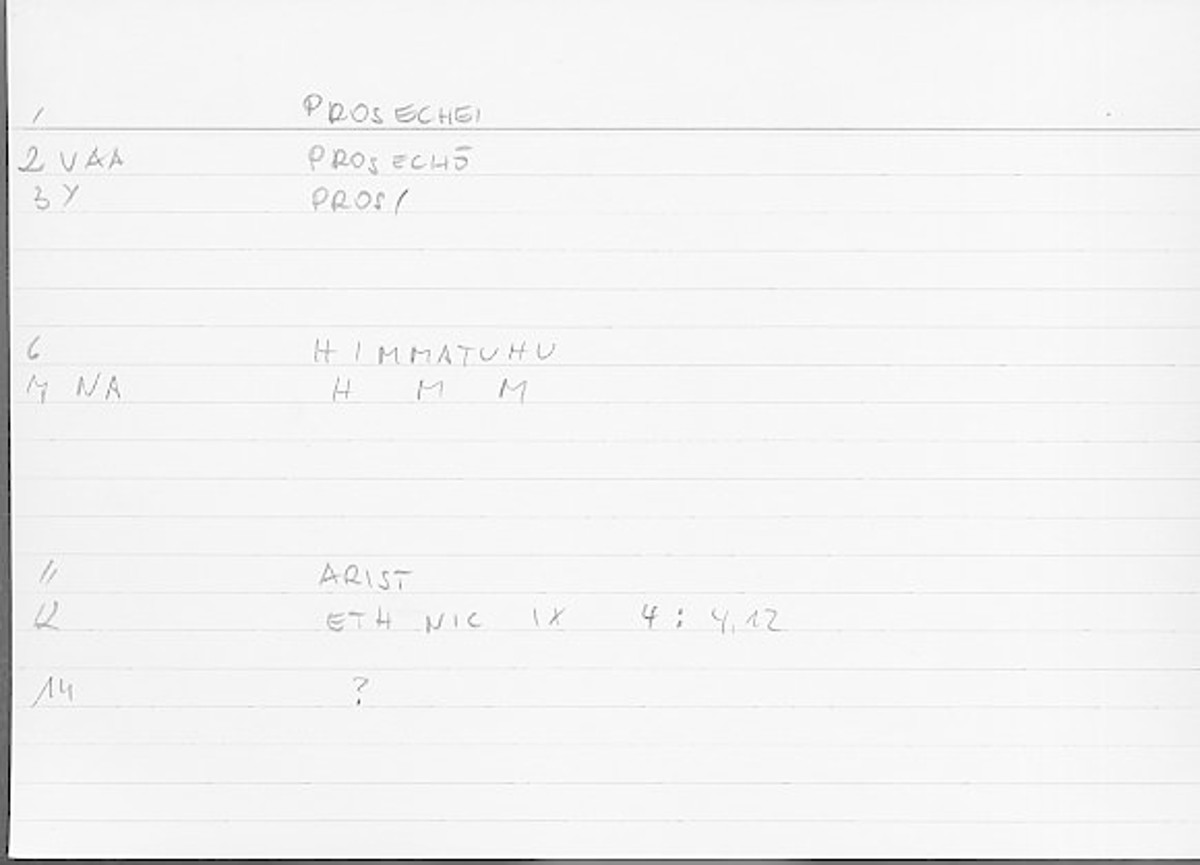 1 PROSECHEI
2 VAA PROSECHŌ
3 Y PROS/
6 HIMMATUHU
4 NA H M M
11 ARIST
12 ETH NIC IX 4 : 4,12
14 ?